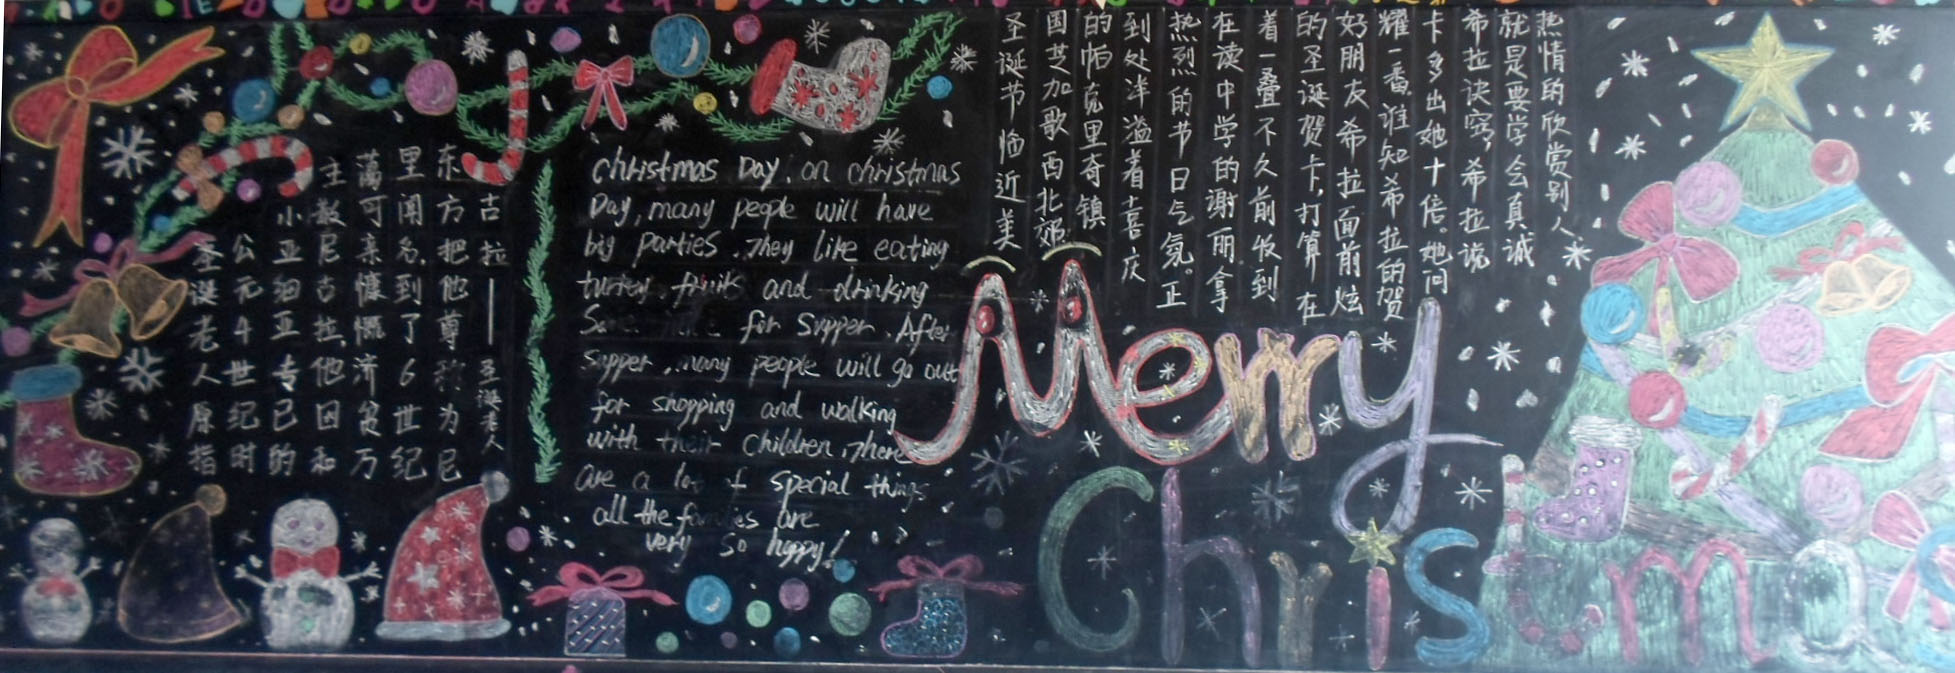 圣诞老人原指
公元4世纪时
小亚细亚专已的
主教尼古拉,他因和
蔼可亲慷慨济贫万
里闻名.到了6世纪
东方把他尊称为尼
古拉——圣诞老人
christmas Day. on christmas
Day, many people will have
big parties. They like eating
turkey. fruits and drinking
for Supper. After
supper, many people will go out
for shopping and walking
with their children. There
are a lot of special things
all the families are
very so happy!
圣诞节临近美
国芝加歌西北郊
的帕克里奇镇
到处洋溢着喜庆
热烈的节日气氛。正
在读中学的谢丽拿
着一叠不久前收到
的圣诞贺卡,打算在
好朋友希拉面前炫
耀一番,谁知希拉的贺
卡多出她十倍。她问
希拉诀窍,希拉说
就是要学会真诚
热情的欣赏别人
Merry
Christma